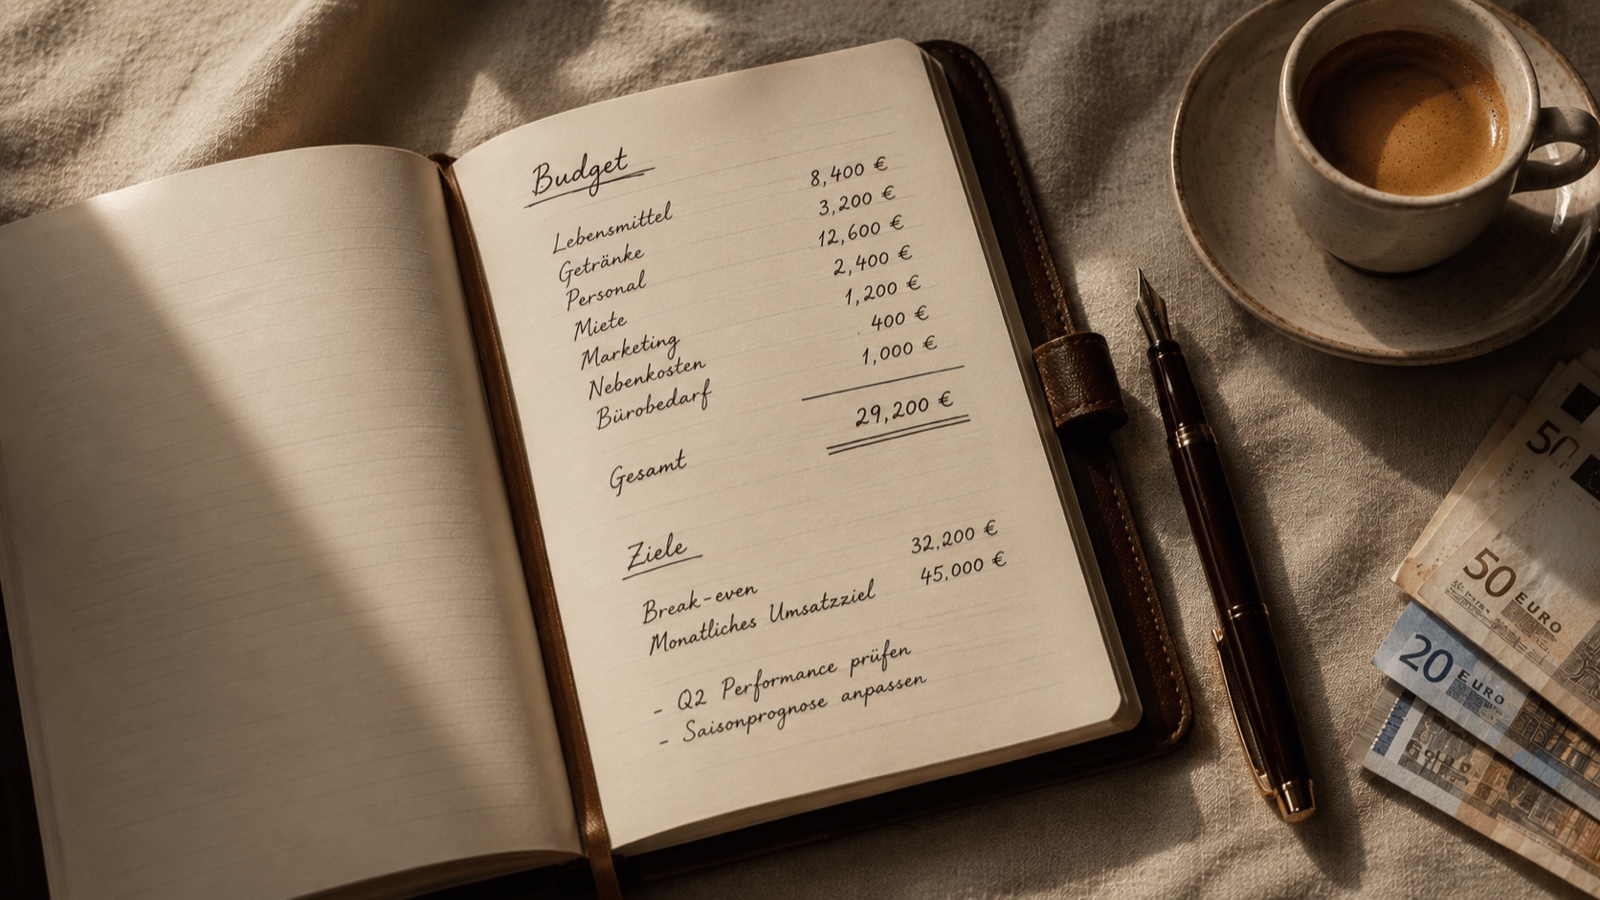 Budget
Lebensmittel 8,400 €
Getränke 3,200 €
Personal 12,600 €
Miete 2,400 €
Marketing 1,200 €
Nebenkosten 400 €
Bürobedarf 1,000 €
Gesamt 29,200 €
Ziele
Break-even 32,200 €
Monatliches Umsatzziel 45,000 €
- Q2 Performance prüfen
- Saisonprognose anpassen
50
50 EURO
20 EURO